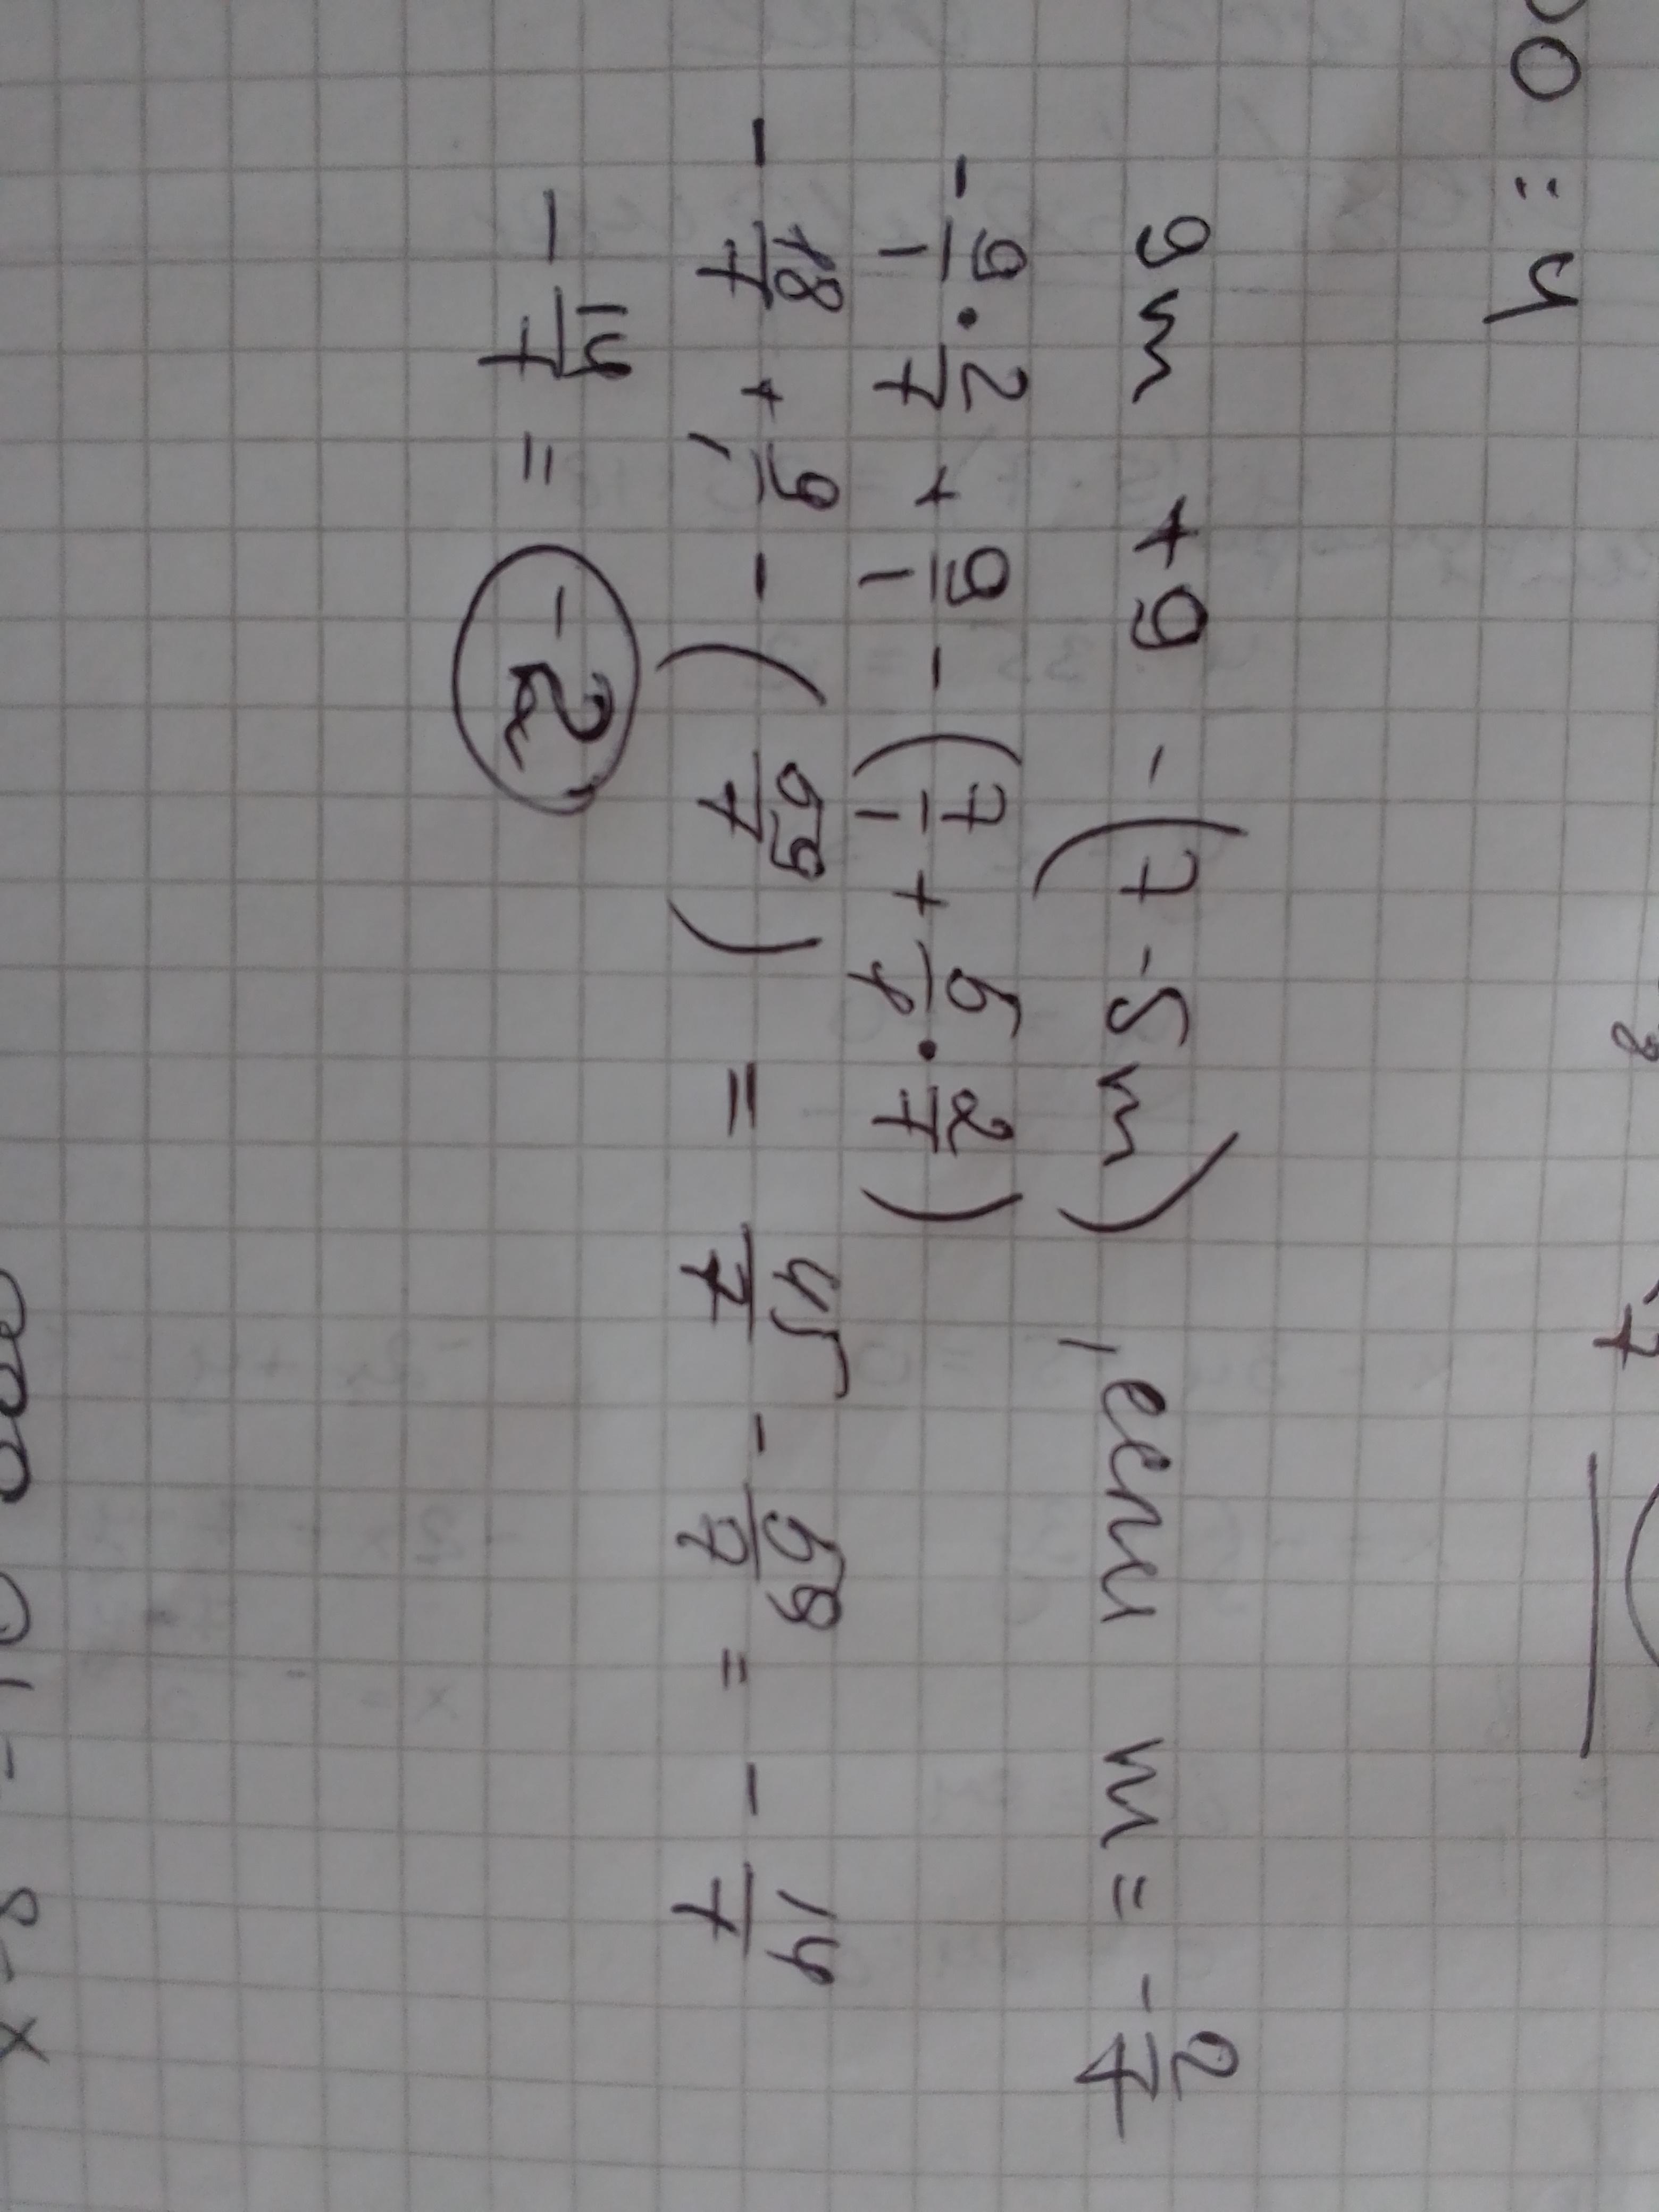 00 : 4
9m + 9 - (7 - 5m) , если m = - 2/7
- 9/1 · 2/7 + 9/1 - (7/1 + 5/1 · 2/7)
- 18/7 + 9/1 - (59/7) = 45/7 - 59/7 = - 14/7
- 14/7 = -2